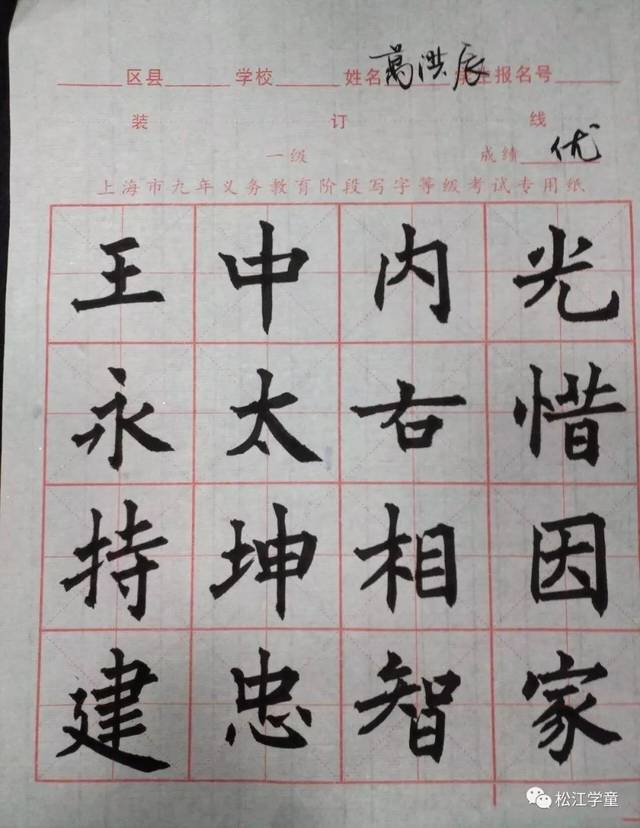 区县 学校 姓名 葛洪辰 学生报名号
装 订 线
一级 成绩 优
上海市九年义务教育阶段写字等级考试专用纸
王 中 内 光
永 太 右 惜
持 坤 相 因
建 忠 智 家
松江学童